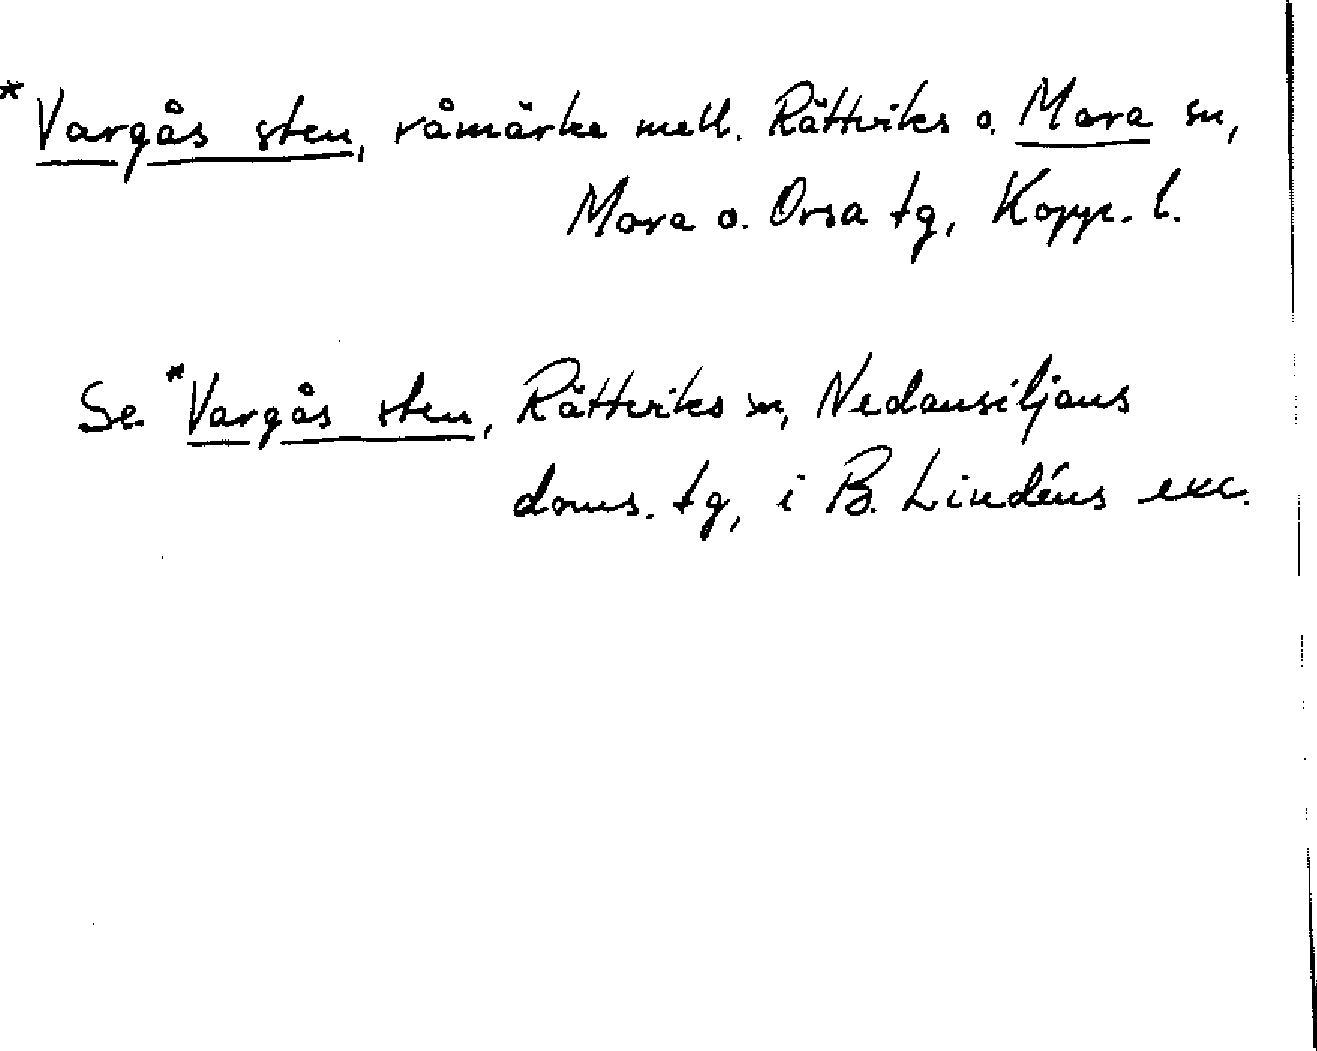 *Vargås sten, råmärke mell. Rättviks o. Mora sn,
Mora o. Orsa tg, Kopp. l.
Se *Vargås sten, Rättviks sn, Nedansiljans
doms. tg, i B. Lindéns exc.